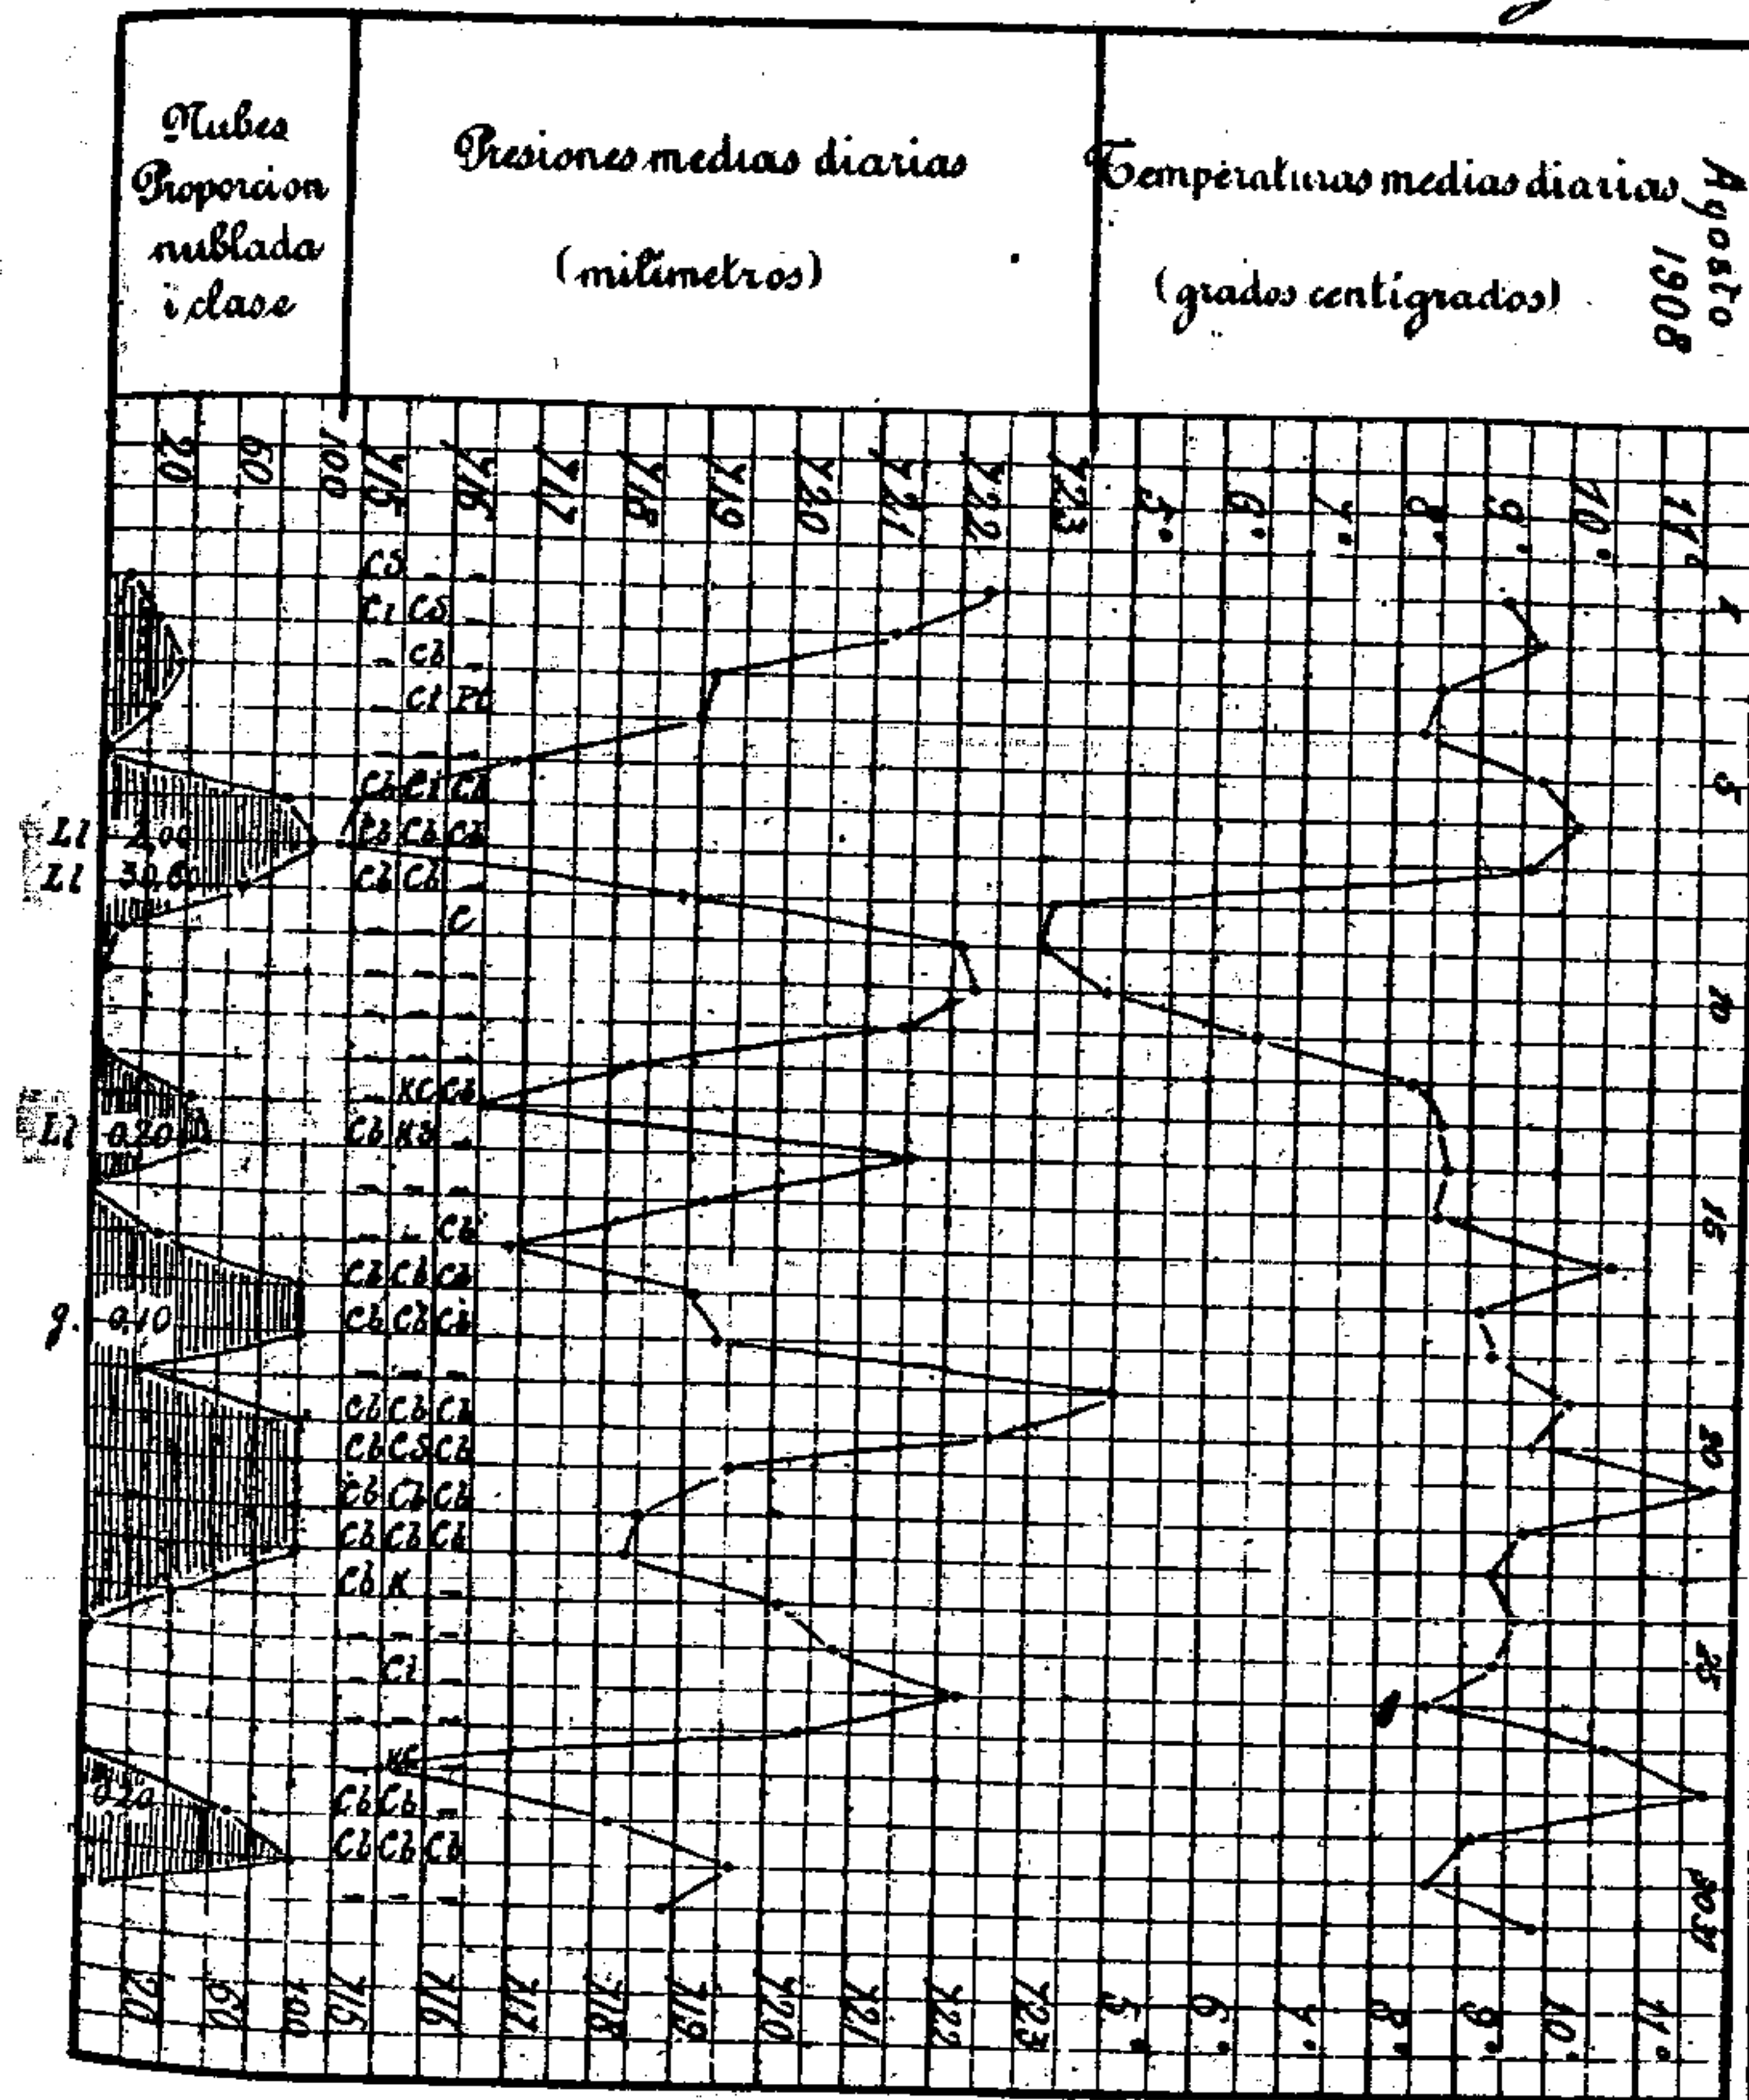 Nubes
Proporcion
nublada
i clase
Presiones medias diarias
(milímetros)
Temperaturas medias diarias
(grados centígrados)
Agosto
1908
20 60 100 715 716 717 718 719 720 721 722 723 5° 6° 7° 8° 9° 10° 11°
CS _ _
Ci CS _ 1
_ Cb _
_ Ci
_ _ _
Cb Ci Cb 5
Ll 2,00 Cb Cb Cb
Ll 30,60 Cb Cb _
_ _ C
_ _ _
_ _ _ 10
_ _ _
_ KC Cb
Ll 0.20 Cb Kb _
_ _ _
_ _ Cb 15
Cb Cb Cb
g. 0,10 Cb Cb Cb
_ _ _
Cb Cb Cb
Cb CS Cb 20
Cb Cb Cb
Cb Cb Cb
Cb K _
_ _ _
_ Ci _ 25
_ _ _
_ KC _
0,20 Cb Cb _
Cb Cb Cb
_ _ _ 30 31
20 60 100 715 716 717 718 719 720 721 722 723 5° 6° 7° 8° 9° 10° 11°